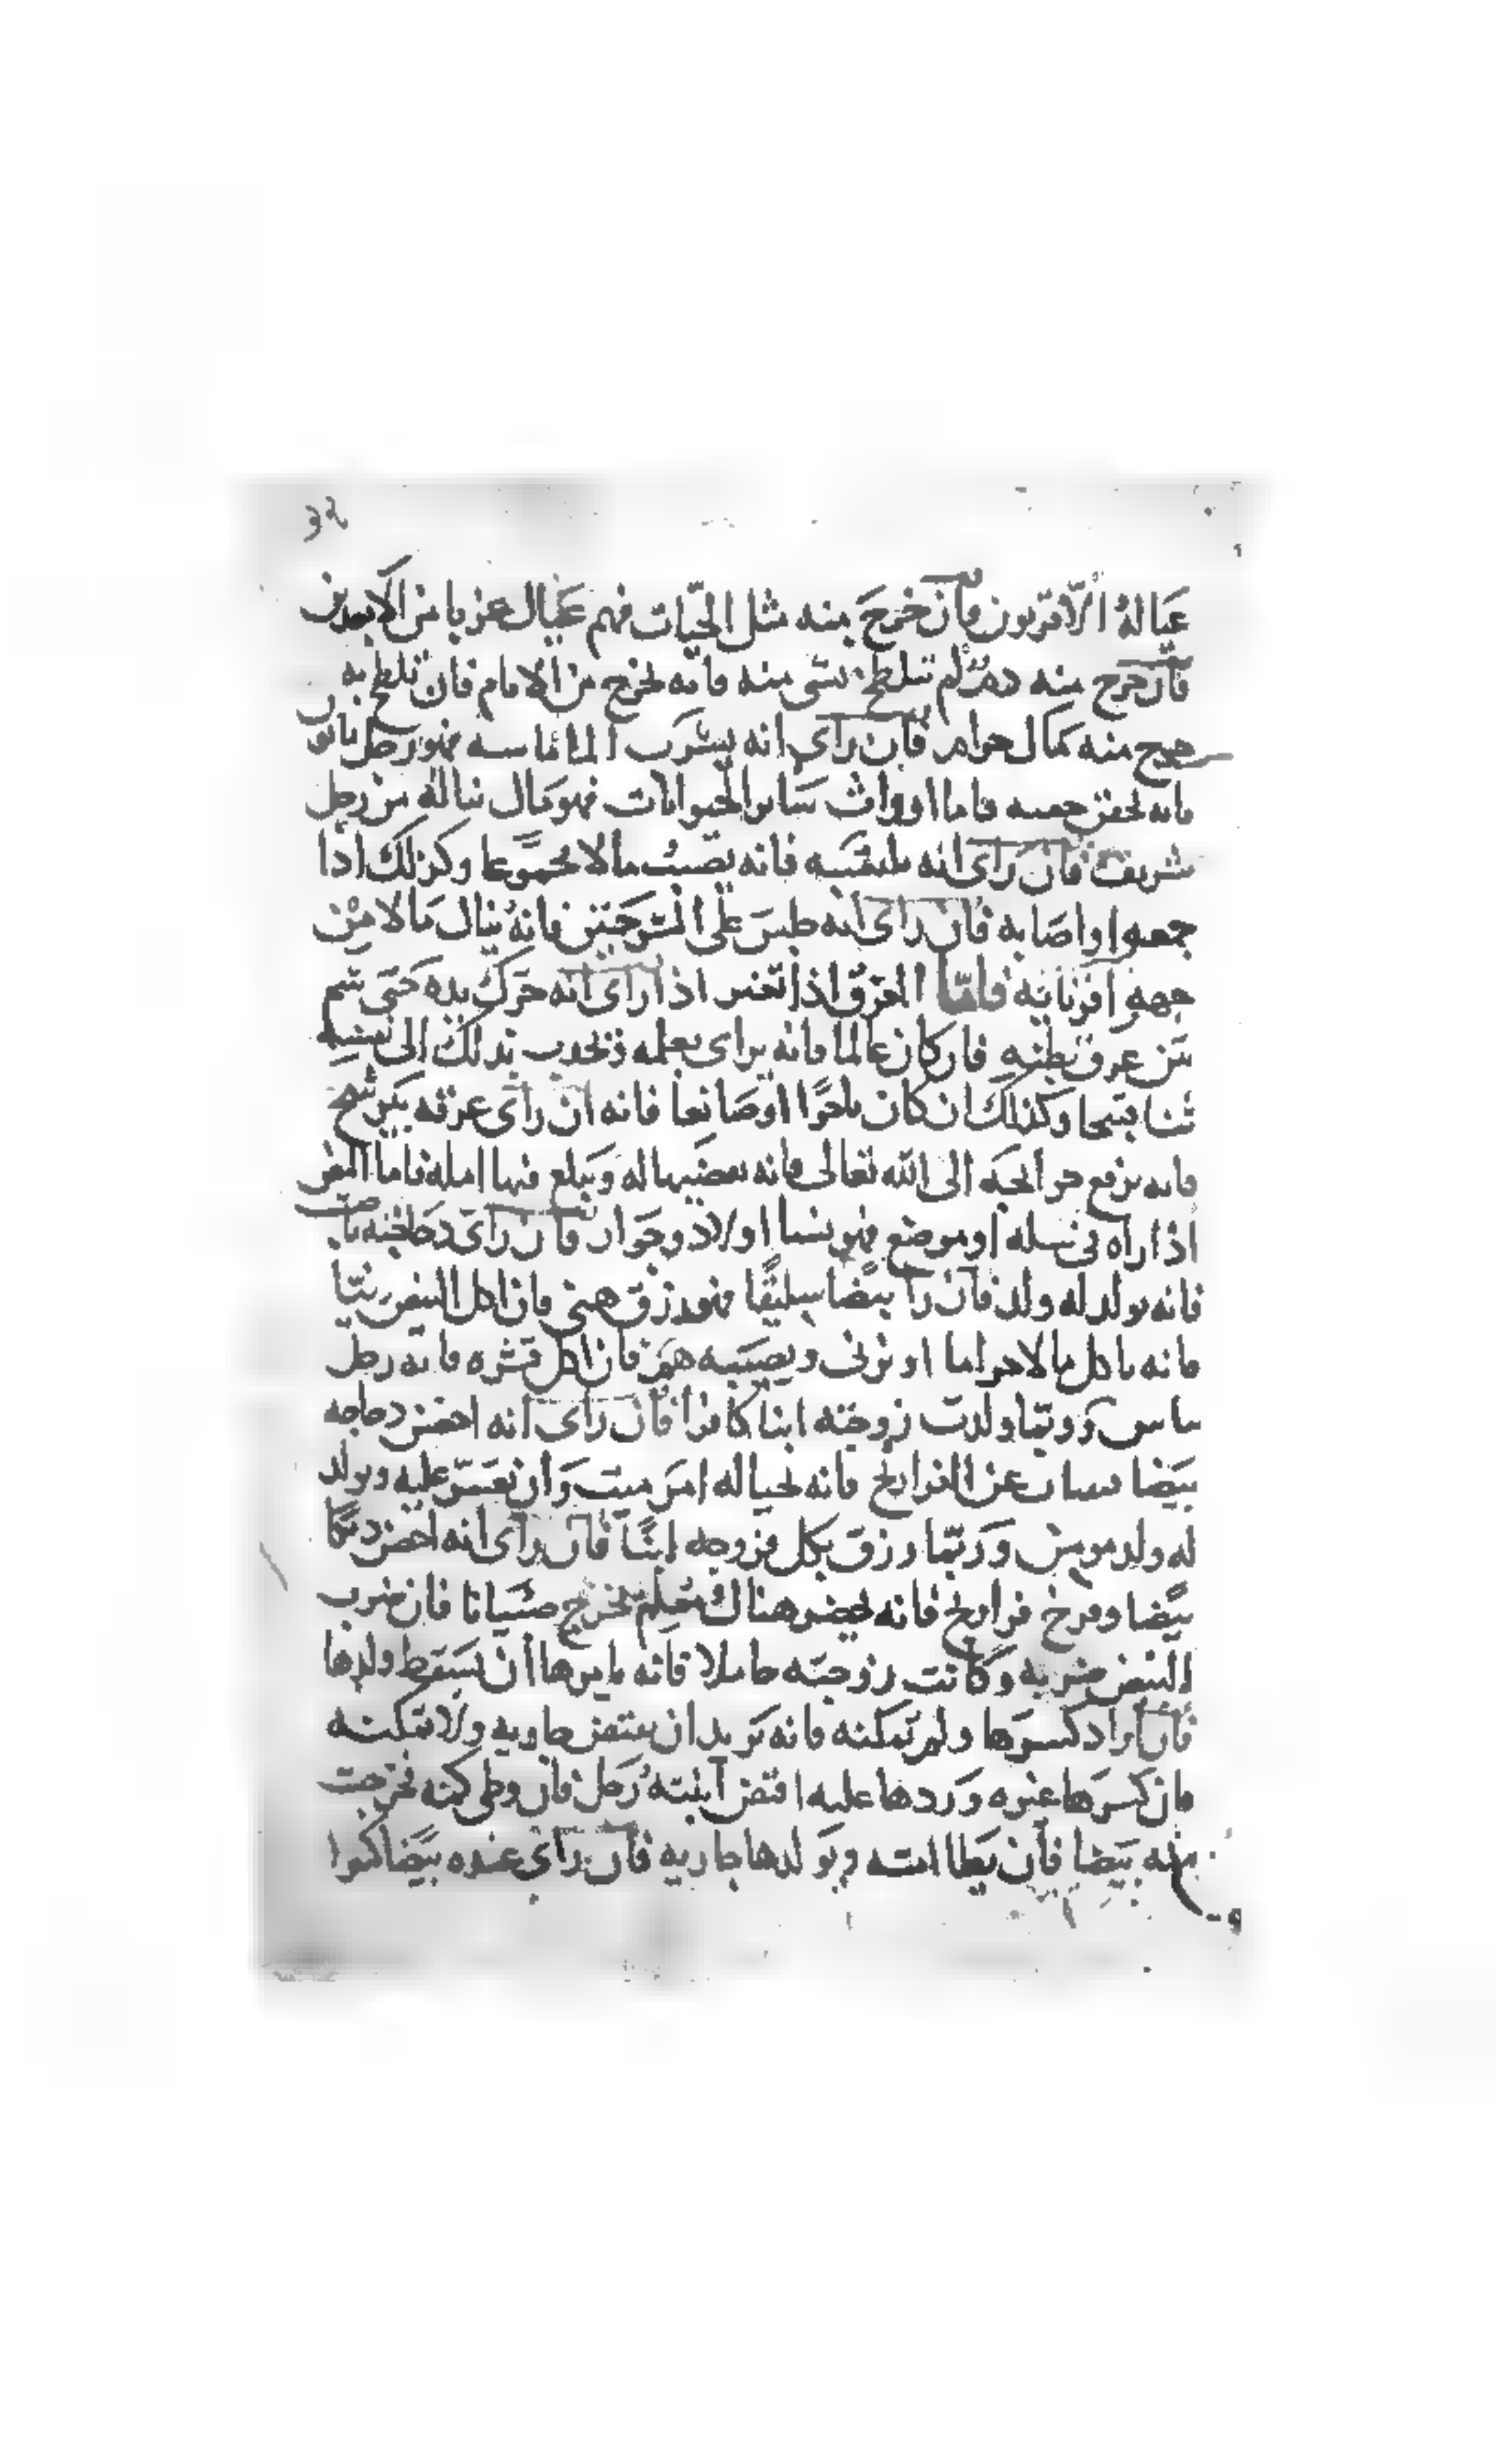 عياله الاقربون فان خرج منه مثل الحيات فهم عيال غربا من الابعدين
فان خرج منه دم لم يتلطخ بشي منه فانه يخرج من الاثام فان تلطخ به
خرج منه بمال حرام فان راى انه يشرب الما فهو رجل
فانه فاما ارواث ساير الحيوانات فهو مال يناله من رجل
شريف فان راى انه فانه يصيب مالا مجموعا وكذلك اذا
جمعه او اصابه فان راى انه جلس على السرجين فانه ينال مالا من
جهه اقربايه فاما العرق اذا اذا راى انه حرك يده حتى شم
نتن عرق بطنه فان كان عالما فانه يراى بعلمه بذلك الى نفسه
ثنا قبيحا وكذلك ان كان تاجرا او صانعا فانه ان راى عرقه يرشح
فانه يرفع حوائجه الى الله تعالى فانه يقضيها له ويبلغ فيها امله فاما البيض
اذا راه في سله او موضع فهو نسا اولاد وجوار فان راى دجاجته باضت
فانه يولد له ولد فان راى بيضا سليقا فهو رزق هني فان اكل البيض نيا
فانه ياكل مالا حراما او يزني ويصيبه هم فان اكل قشره فانه رجل
نباش وربما ولدت زوجته ابنا كافرا فان راى انه احضن دجاجه
بيضا عن الفراريخ فانه يحيا له امر ميت وان تعسر عليه ويولد
له ولد مومن وربما رزق بكل فروجه ابنا فان راى انه احضن ديكا
بيضا وفرخ فراريخ فانه يحضر هناك معلم يخرج صبيانا فان ضرب
البيض ضربه وكانت زوجته حاملا فانه يامرها ان تسقط ولدها
فان اراد كسرها ولم تمكنه فانه يريد ان يفتض جاريه ولا تمكنه
فان كسرها غيره وردها عليه افتض ابنته رجل فان وطي فخرجت
منه بيضا فان يطا امته ويولدها جاريه فان راى عنده بيضا كثيرا